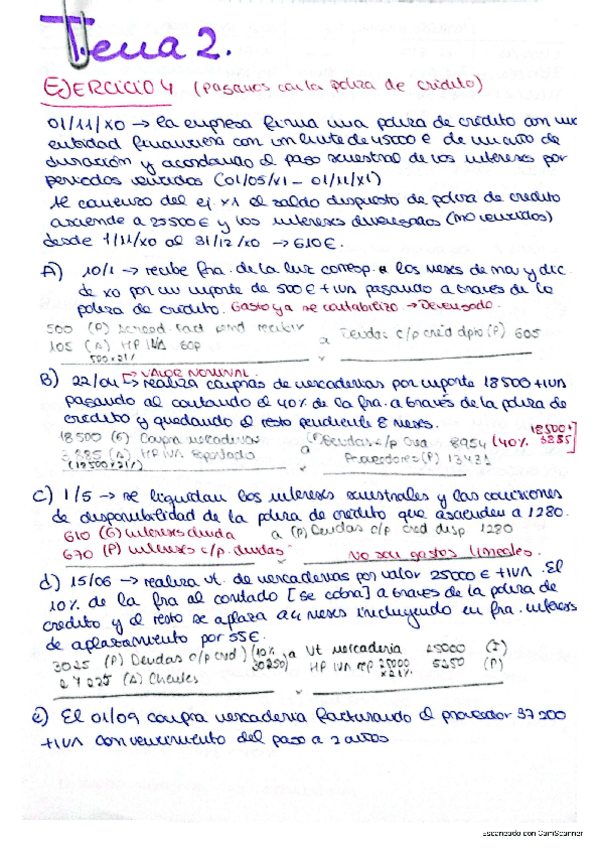 Tema 2.
EJERCICIO 4 (Pagamos con la poliza de credito)
01/11/x0 → la empresa firma una poliza de credito con una
entidad financiera con un limite de 45000 € de un año de
duración y acordando el pago semestral de los intereses por
periodos vencidos (01/05/x1 - 01/11/x1)
Al comienzo del ej. x1 el saldo dispuesto de poliza de credito
asciende a 23500 € y los intereses devengados (no vencidos)
desde 1/11/x0 al 31/12/x0 → 610 €.
A) 10/1 → recibe fra. de la luz corresp. a los meses de nov y dic.
de x0 por un importe de 500 € + IVA pagando a través de la
poliza de crédito. Gasto ya se contabilizo → Devengado.
500 (P) Acreed. fact pend recibir
105 (A) HP IVA sop a Deudas c/p cred dpto (P) 605
500x21%
B) 22/04 → VALOR NOMINAL.
realiza compras de mercaderias por importe 18500 + IVA
pagando al contado el 40% de la fra. a través de la poliza de
crédito y quedando el resto pendiente 8 meses.
18500 (G) Compra mercaderias a (P) Deudas c/p 8954 (40% 18500+ 3885]
3885 (A) HP IVA Soportado Proveedores (P) 13431
(18500x21%)
C) 1/5 → se liquidan los intereses semestrales y las comisiones
de disponibilidad de la poliza de credito que ascienden a 1280.
610 (G) intereses deuda a (P) Deudas c/p cred disp 1280
670 (P) intereses c/p deudas No seu gastos lineales.
d) 15/06 → realiza vt. de mercaderias por valor 25000 € + IVA. El
10% de la fra al contado [se cobra] a través de la poliza de
credito y el resto se aplaza a 4 meses incluyendo en fra. intereses
de aplazamiento por 55 €.
3025 (P) Deudas c/p cred (10% 30250) a Vt mercaderia 25000 (I)
27225 (A) Clientes HP IVA rep 25000 x21% 5250 (P)
e) El 01/09 compra mercaderia facturando el proveedor 37200
+ IVA con vencimiento del pago a 2 años
Escaneado con CamScanner